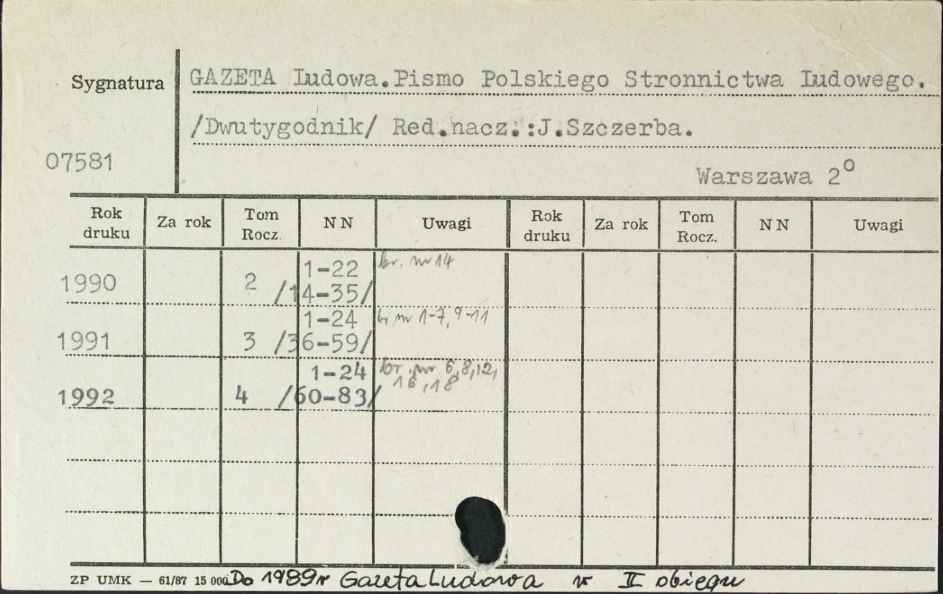 Sygnatura
GAZETA Ludowa.Pismo Polskiego Stronnictwa Ludowego.
/Dwutygodnik/ Red.nacz.:J.Szczerba.
07581
Warszawa 2o
Rok druku Za rok Tom Rocz. NN Uwagi Rok druku Za rok Tom Rocz. NN Uwagi
1990 2 1-22 /14-35/ br. nr 14
1991 3 1-24 /36-59/ br nr 1-7, 9-11
1992 4 1-24 /60-83/ br. nr 6,8,12, 16,18
ZP UMK — 61/87 15 000 Do 1989r Gazeta Ludowa w II obiegu